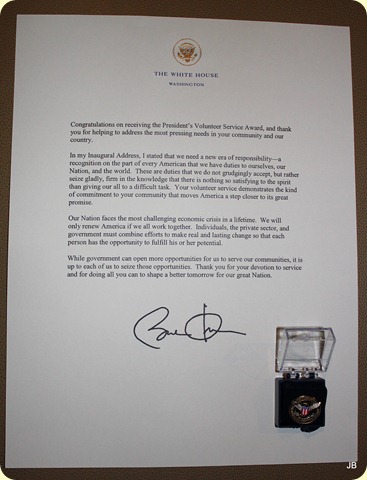 THE WHITE HOUSE
WASHINGTON
Congratulations on receiving the President's Volunteer Service Award, and thank
you for helping to address the most pressing needs in your community and our
country.
In my Inaugural Address, I stated that we need a new era of responsibility—a
recognition on the part of every American that we have duties to ourselves, our
Nation, and the world. These are duties that we do not grudgingly accept, but rather
seize gladly, firm in the knowledge that there is nothing so satisfying to the spirit
than giving our all to a difficult task. Your volunteer service demonstrates the kind
of commitment to your community that moves America a step closer to its great
promise.
Our Nation faces the most challenging economic crisis in a lifetime. We will
only renew America if we all work together. Individuals, the private sector, and
government must combine efforts to make real and lasting change so that each
person has the opportunity to fulfill his or her potential.
While government can open more opportunities for us to serve our communities, it is
up to each of us to seize those opportunities. Thank you for your devotion to service
and for doing all you can to shape a better tomorrow for our great Nation.
JB